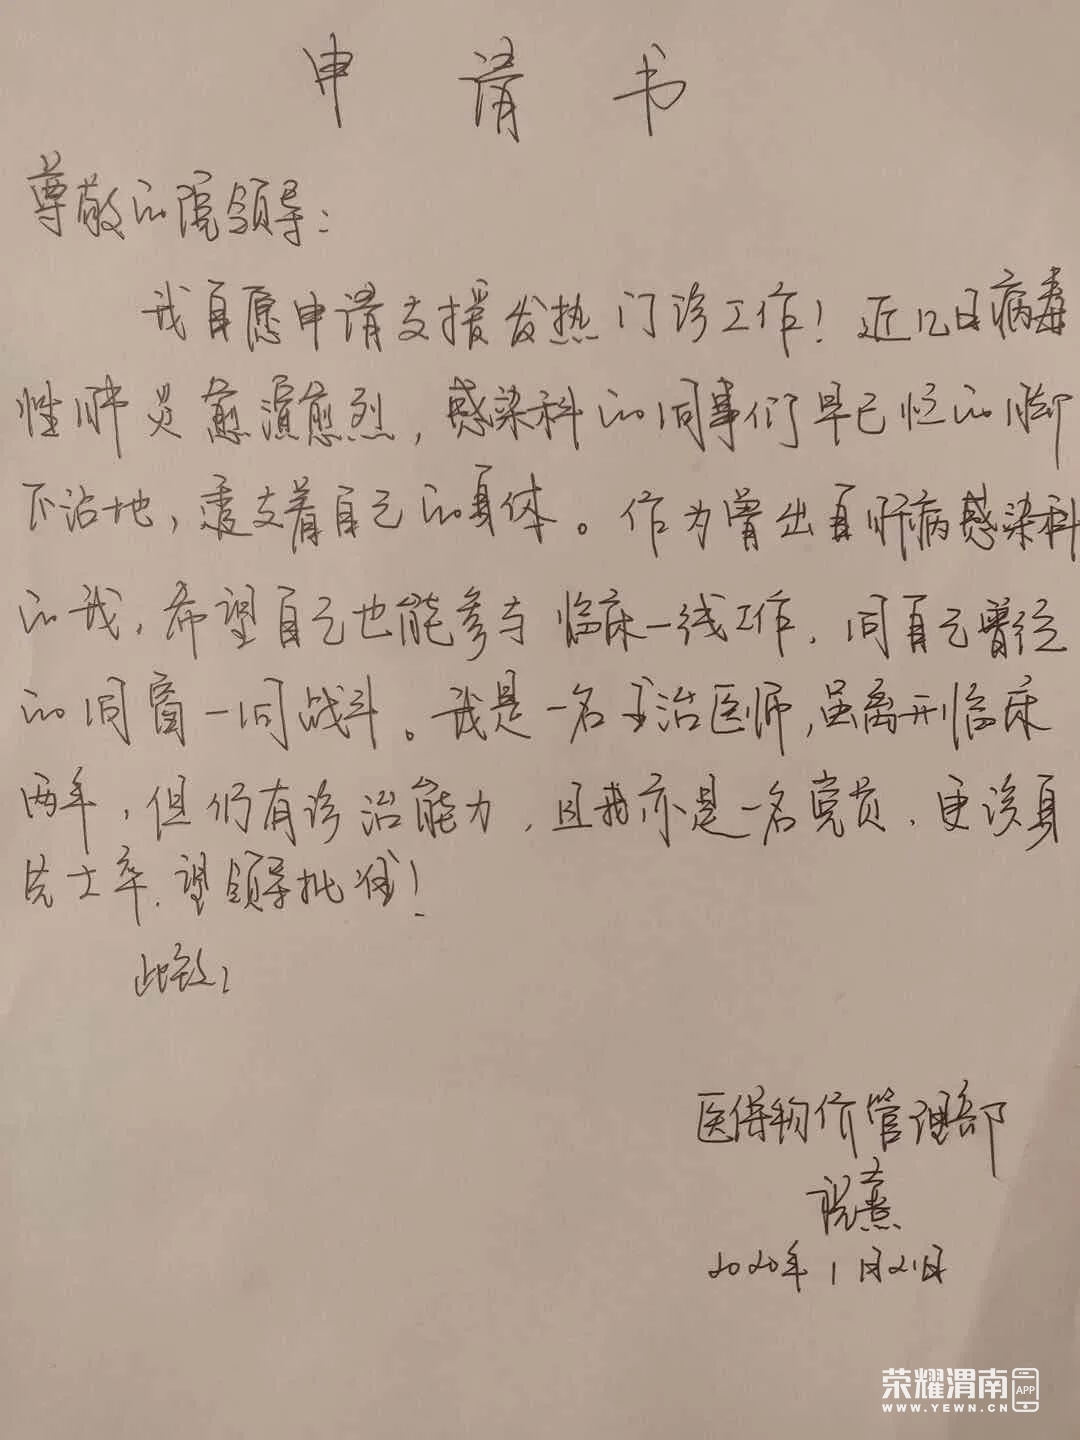 申请书
尊敬的院领导：
我自愿申请支援发热门诊工作！近几日病毒
性肺炎愈演愈烈，感染科的同事们早已忙的脚
不沾地，透支着自己的身体。作为曾出自肝病感染科
的我，希望自己也能参与临床一线工作，同自己曾经
的同窗一同战斗。我是一名主治医师，虽离开临床
两年，但仍有诊治能力，且我亦是一名党员，更该身
先士卒．望领导批准！
此致！
医保物价管理部
祝
2020年1月21日
荣耀渭南APP
WWW.YEWN.CN